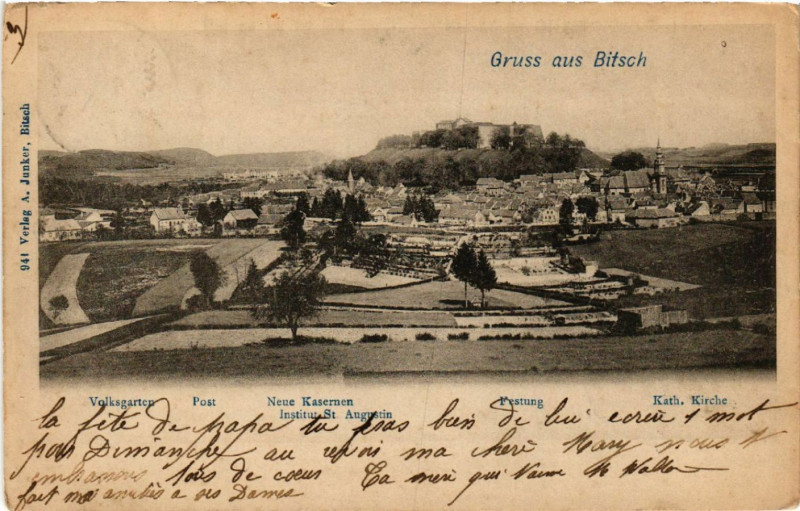 Gruss aus Bitsch
941 Verlag A. Junker, Bitsch
Volksgarten Post Neue Kasernen Festung Kath. Kirche
Institut St Augustin
la fête de papa tu feras bien de lui ecrire 1 mot
pour Dimanche au revoir ma chere Mary nous t'
embrassons tous de cœur Ta mere qui t'aime M Waller
fait mes amitiés a ces Dames